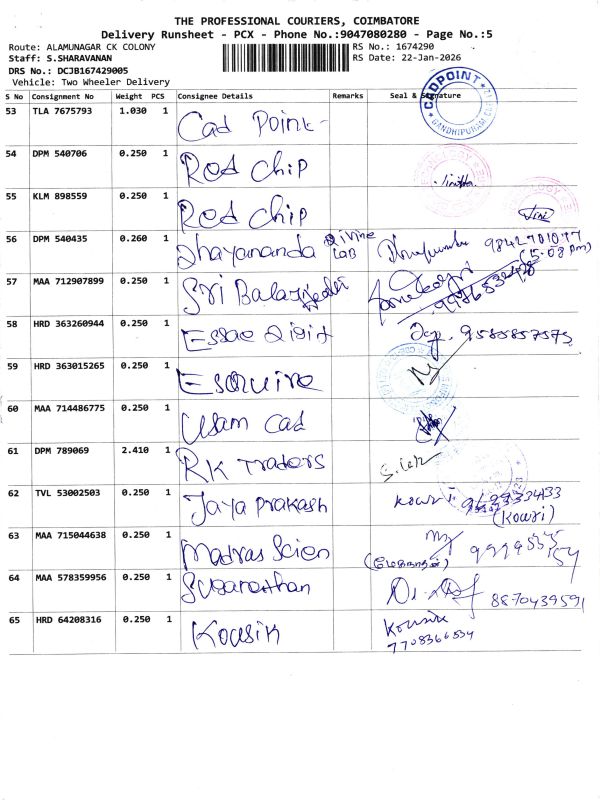 THE PROFESSIONAL COURIERS, COIMBATORE
Delivery Runsheet - PCX - Phone No.:9047080280 - Page No.:5
Route: ALAMUNAGAR CK COLONY RS No.: 1674290
Staff: S.SHARAVANAN RS Date: 22-Jan-2026
DRS No.: DCJB167429005
Vehicle: Two Wheeler Delivery
S No Consignment No Weight PCS Consignee Details Remarks Seal & Signature
CADPOINT
GANDHIPURAM
53 TLA 7675793 1.030 1 Cad Point
54 DPM 540706 0.250 1 Red Chip
55 KLM 898559 0.250 1 Red Chip
56 DPM 540435 0.260 1 Dhayananda Divine Lab 9842701077
(5:08 pm)
57 MAA 712907899 0.250 1 Sri Balaji
58 HRD 363260944 0.250 1 Essae Digit 9585857573
59 HRD 363015265 0.250 1 Esquire
60 MAA 714486775 0.250 1 Usam Cad
61 DPM 789069 2.410 1 RK Traders
62 TVL 53002503 0.250 1 Jaya Prakash Kowri
(Kowri)
63 MAA 715044638 0.250 1 Madras Scien
64 MAA 578359956 0.250 1 8870439591
65 HRD 64208316 0.250 1 Kousik Kousik
7708366534